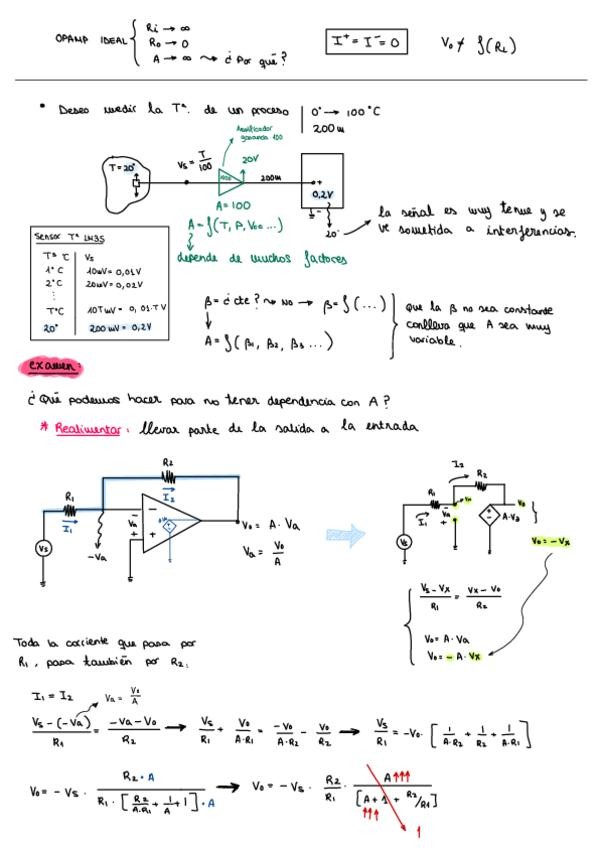 OPAMP IDEAL { Ri → ∞
Ro → 0
A → ∞ ⇝ ¿Por qué?
I⁺ = I⁻ = 0
Vo ≠ f(RL)
• Deseo medir la Tª. de un proceso | 0° → 100°C
200 m
Amplificador
ganancia 100
T = 20°
Vs = T/100
20V
200m
0,2V
A = 100
20°
A = f(T, P, Vcc ...)
depende de muchos factores
la señal es muy tenue y se
ve sometida a interferencias.
Sensor Tª LM35
Tª °C | Vs
1°C | 10mV = 0,01V
2°C | 20mV = 0,02V
⋮
T°C | 10TmV = 0,01·TV
20° | 200mV = 0,2V
β = ¿cte? ⇝ No → β = f(...)
A = f(β1, β2, β3 ...)
que la β no sea constante
conlleva que A sea muy
variable.
examen:
¿Qué podemos hacer para no tener dependencia con A?
* Realimentar: llevar parte de la salida a la entrada
R2
I2
R1
I1
Va
-Va
Vs
Vo = A · Va
Va = Vo/A
I2
R2
R1
I1
Vx
Va
Vo
A·Va
Vs
Vo = -Vx
(Vs - Vx)/R1 = (Vx - Vo)/R2
Vo = A · Va
Vo = -A · Vx
Toda la corriente que pasa por
R1, pasa también por R2:
I1 = I2
Va = Vo/A
(Vs - (-Va))/R1 = (-Va - Vo)/R2 → Vs/R1 + Vo/(A·R1) = -Vo/(A·R2) - Vo/R2 → Vs/R1 = -Vo · [1/(A·R2) + 1/R2 + 1/(A·R1)]
Vo = -Vs · (R2 · A)/(R1 · [R2/(A·R1) + 1/A + 1] · A) → Vo = -Vs · R2/R1 · A↑↑↑/[A + 1 + R2/R1]
↑↑↑
1